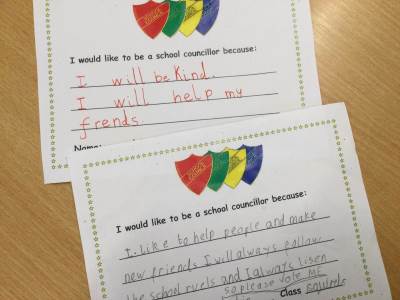 I would like to be a school councillor because:
I will be kind.
I will help my
frends.
Name:
I would like to be a school councillor because:
I like to help people and make
new friends I will always follow
the school ruels and I always lisen
so please vote ME
Class squirrels